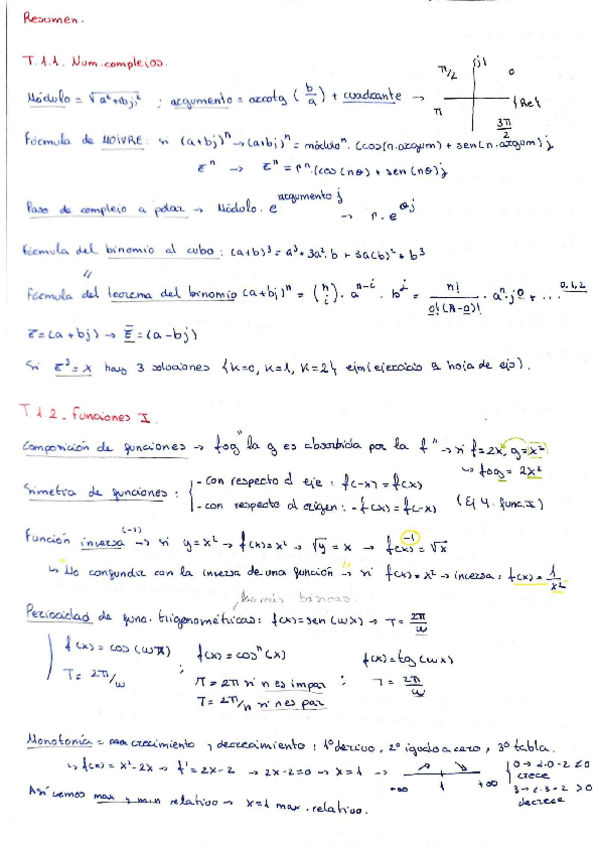 Resumen.
T.1.1. Num. complejos.
jI
π/2
0
Módulo = √a²+bj² ; argumento = arcotg (b/a) + cuadrante →
π
{Re}
3π/2
Fórmula de MOIVRE: si (a+bj)ⁿ → (a+bj)ⁿ = móduloⁿ. (cos(n.argum) + sen(n.argum)j
zⁿ → zⁿ = rⁿ.(cos(nθ) + sen(nθ)j
Paso de complejo a polar → Módulo. e^argumento j → r.e^θj
Fórmula del binomio al cubo: (a+b)³ = a³+3a².b + 3a(b)² + b³
"
Fórmula del teorema del binomio (a+bj)ⁿ = (n/i). a^n-i . b^i = n!/0!(n-0)! . aⁿ.j⁰ + ... 0,1,2
z = (a+bj) → z̄ = (a-bj)
Si z³ = x hay 3 soluciones {k=0, k=1, k=2} ejm(ejercicio 9 hoja de ejs).
T.1.2 - Funciones I.
Composición de funciones → fog" la g es absorbida por la f" → si f=2x, g=x²
↳ fog = 2x²
Simetría de funciones: - con respecto al eje : f(-x) = f(x)
- con respecto al origen: -f(x) = f(-x) (Ej 4. func.I)
Función inversa (-1) → si y=x² → f(x)=x² → √y = x → f(x)^-1 = √x
↳ "No confundir con la inversa de una función" → si f(x) = x² → inversa: f(x) = 1/x²
las más básicas.
Periocidad de func. trigonométricas: f(x)=sen(wx) → T = 2π/w
f(x) = cos(wx) ; f(x)=cosⁿ(x) ; f(x)=tg(wx)
T = 2π/w T=2π si n es impar T = 2π/w
T=2π/n si n es par
Monotonía = crecimiento y decrecimiento: 1º derivo, 2º igualo a cero, 3º tabla.
↳ f(x) = x²-2x → f' = 2x-2 → 2x-2=0 → x=1 →
-∞ 1 +∞
0 → 2.0-2 ≤ 0
crece
3 → 2.3-2 > 0
decrece
Así vemos max y min relativo → x=1 max. relativo.